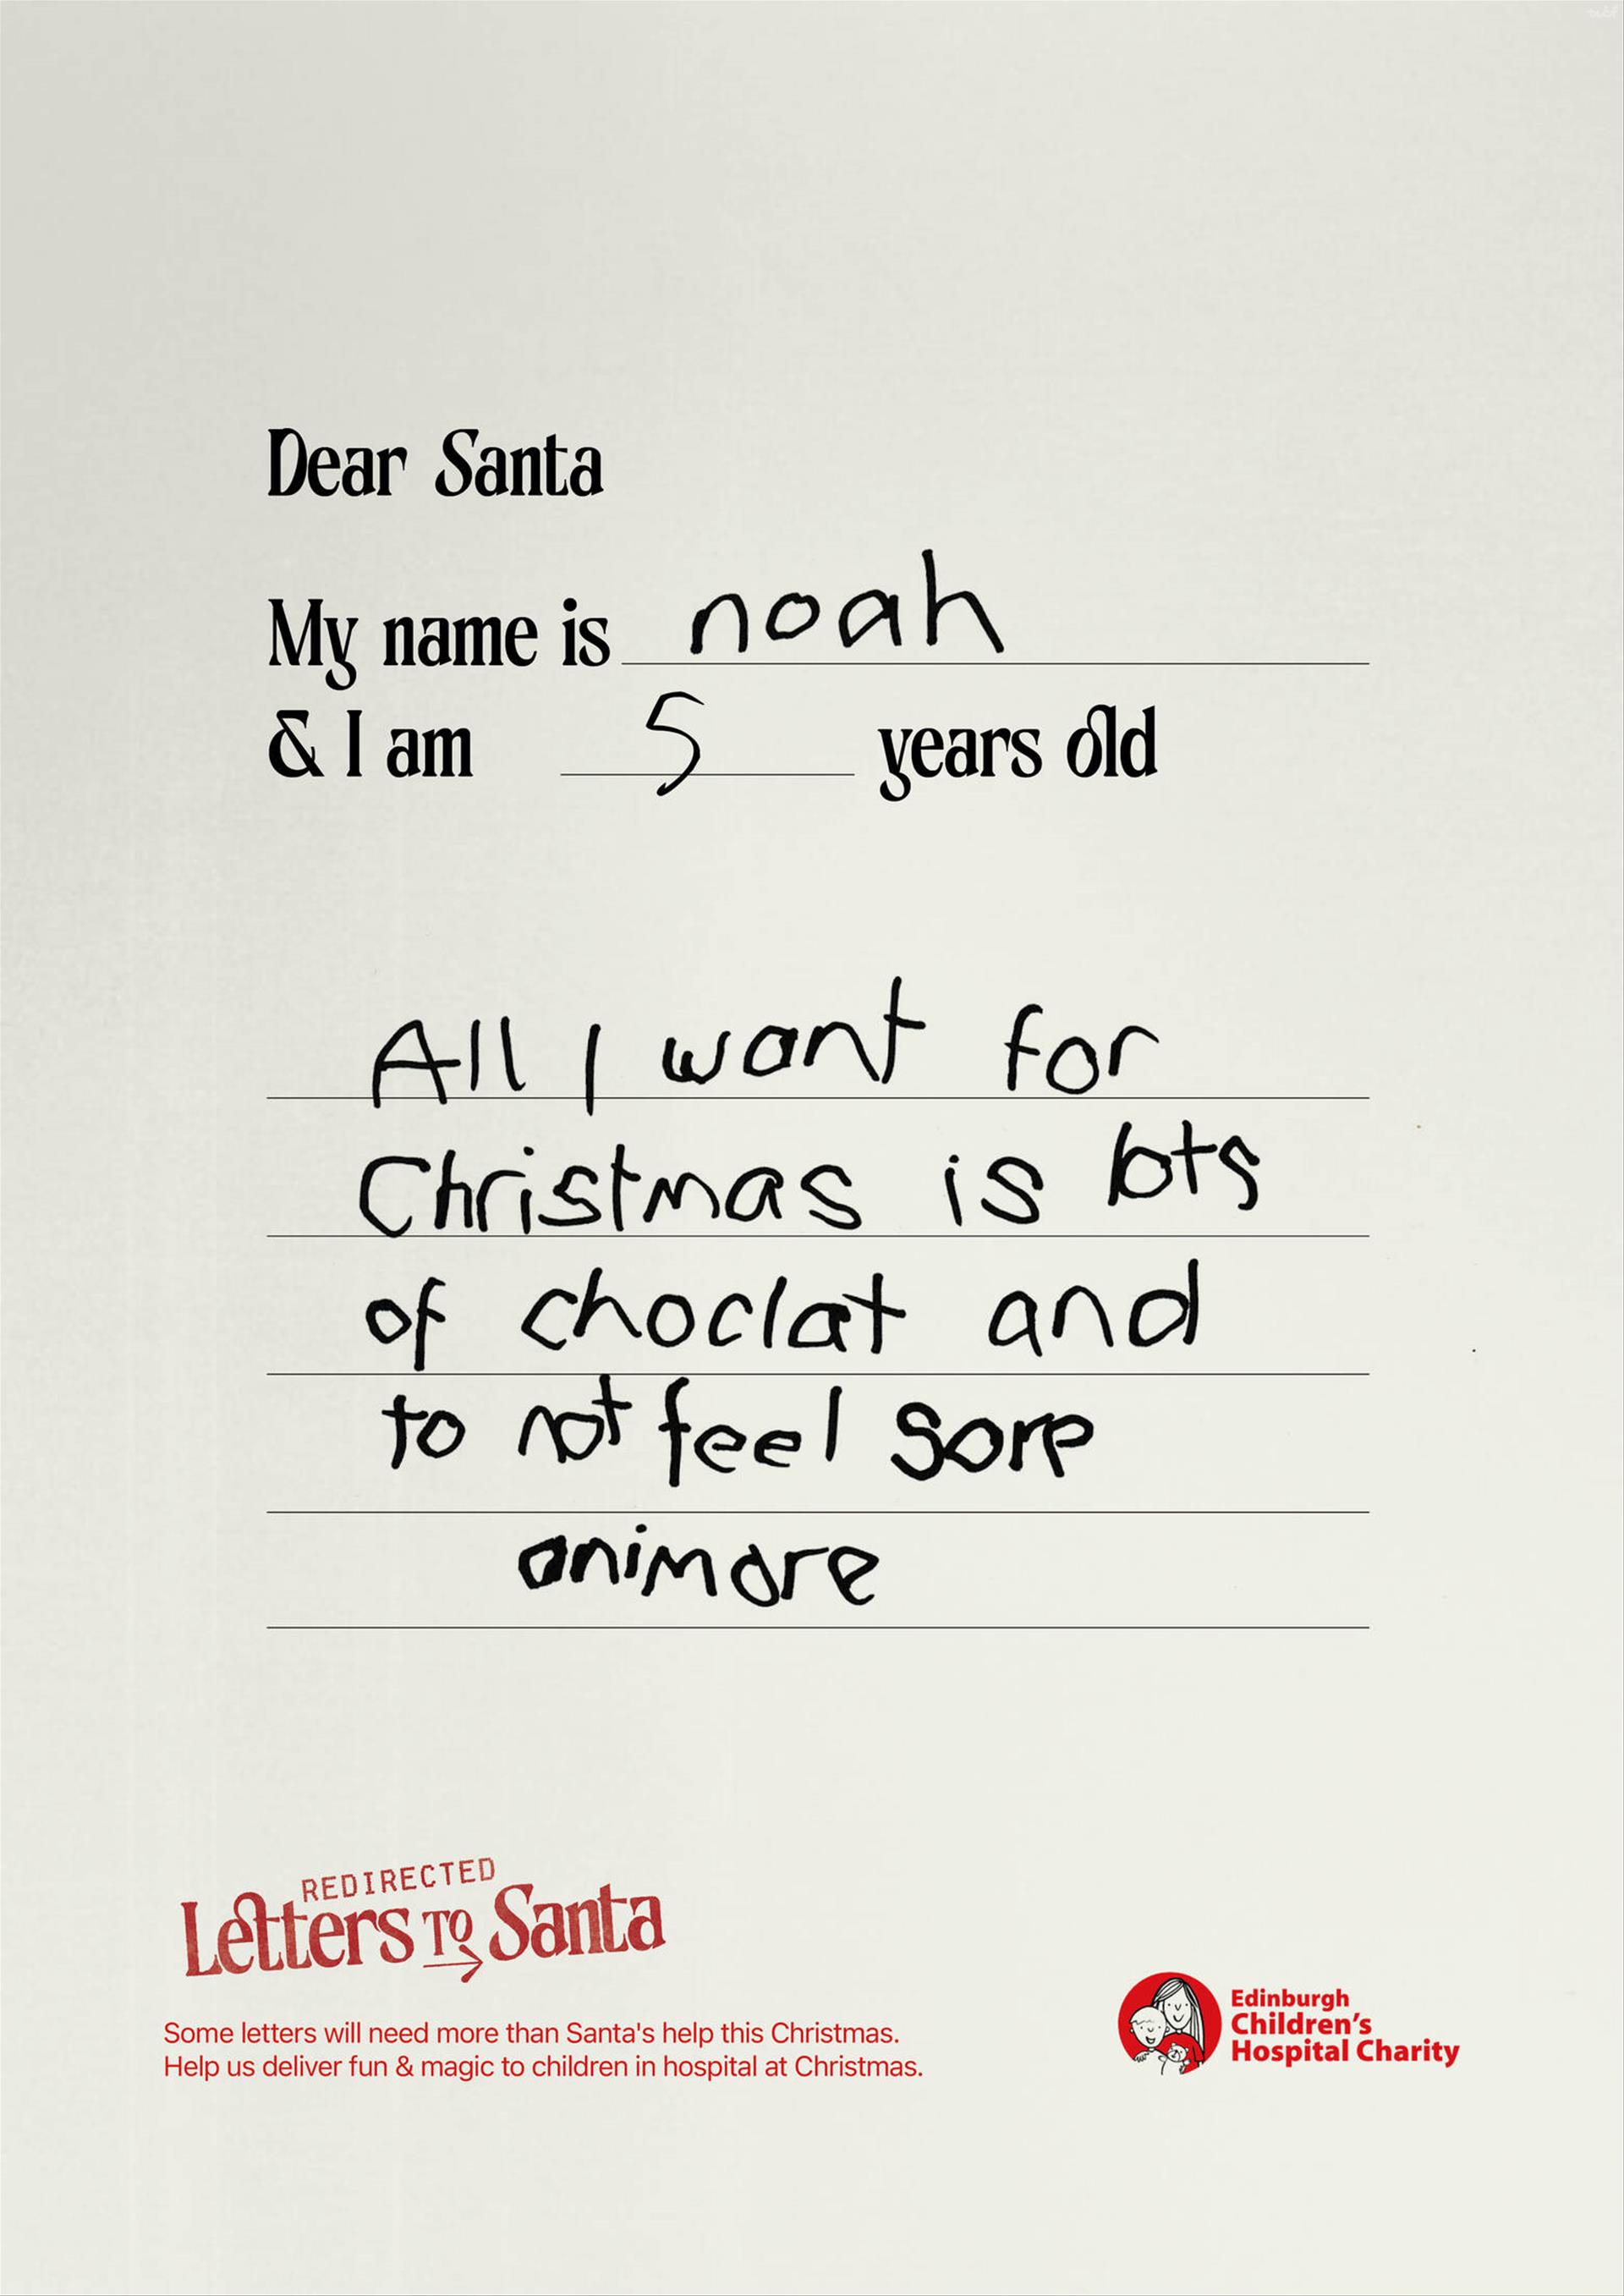 Dear Santa
My name is noah
& I am 5 years old
All I want for
Christmas is lots
of choclat and
to not feel sore
animore
REDIRECTED
Letters TO Santa
Some letters will need more than Santa's help this Christmas.
Help us deliver fun & magic to children in hospital at Christmas.
Edinburgh
Children's
Hospital Charity